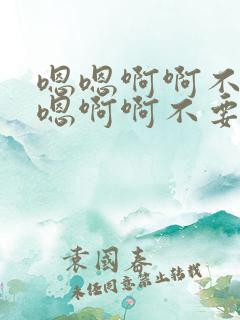 嗯嗯啊啊不
嗯啊啊不要
袁国春
未经同意禁止转载